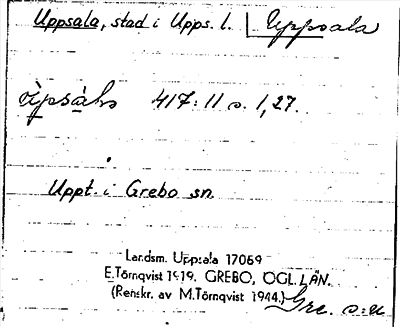 Uppsala, stad i Upps. l. | Uppsala
417:11 s. 1, 27.
Uppt. i Grebo sn.
Landsm. Uppsala 17069
E.Törnqvist 1919. GREBO, ÖGL. LÄN.
(Renskr. av M.Törnqvist 1944.) Gre. s:n